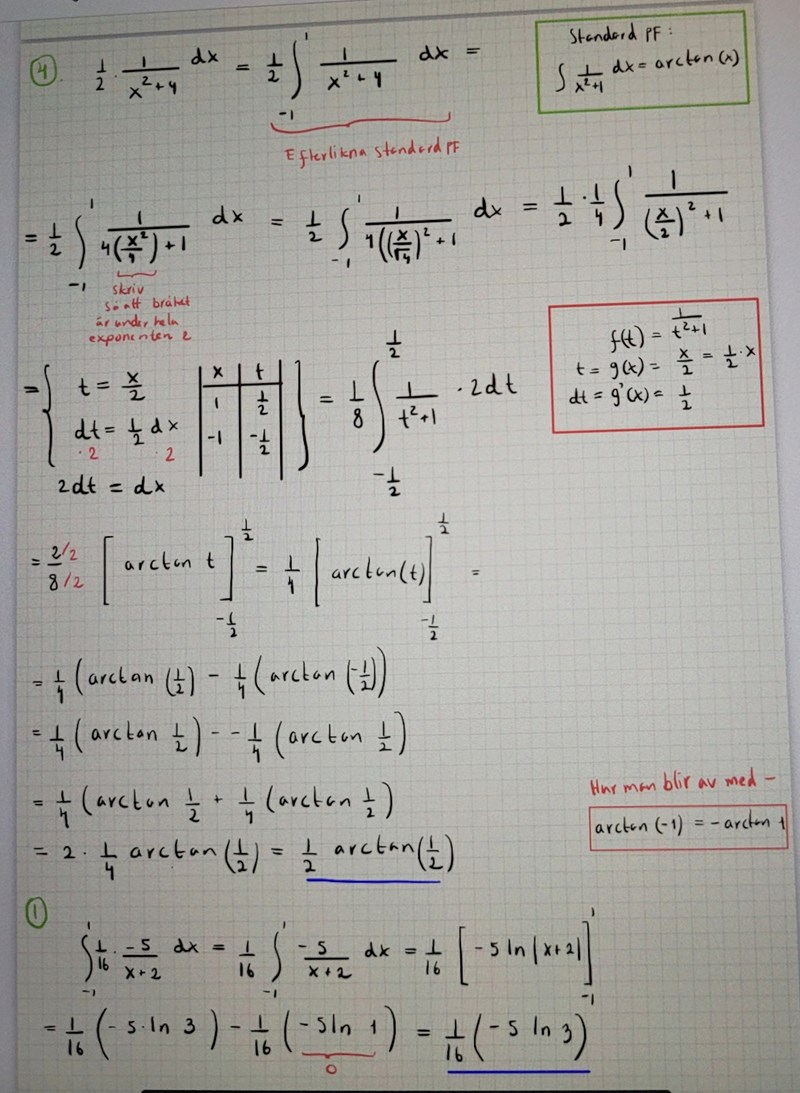 ④. 1/2 · 1/(x²+4) dx = 1/2 ∫₋₁¹ 1/(x²+4) dx =
Standard PF:
∫ 1/(x²+1) dx = arctan(x)
Efterlikna standard PF
= 1/2 ∫₋₁¹ 1/(4(x²/4)+1) dx = 1/2 ∫₋₁¹ 1/(4((x/√4)²+1) dx = 1/2 · 1/4 ∫₋₁¹ 1/((x/2)²+1)
skriv
så att bråket
är under hela
exponenten 2
f(t) = 1/(t²+1)
t = g(x) = x/2 = 1/2 · x
dt = g'(x) = 1/2
= { t = x/2
dt = 1/2 dx
·2 ·2
2dt = dx
x | t
1 | 1/2
-1 | -1/2
} = 1/8 ∫_{-1/2}^{1/2} 1/(t²+1) · 2dt
= 2/2 / 8/2 [arctan t]_{-1/2}^{1/2} = 1/4 [arctan(t)]_{-1/2}^{1/2} =
= 1/4 (arctan (1/2) - 1/4 (arctan (-1/2))
= 1/4 (arctan 1/2) - - 1/4 (arctan 1/2)
= 1/4 (arctan 1/2 + 1/4 (arctan 1/2)
= 2 · 1/4 arctan(1/2) = 1/2 arctan(1/2)
Hur man blir av med -
arctan (-1) = -arctan 1
①
∫₋₁¹ 1/16 · -5/(x+2) dx = 1/16 ∫₋₁¹ -5/(x+2) dx = 1/16 [-5 ln|x+2|]₋₁¹
= 1/16 (-5·ln 3) - 1/16 (-5ln 1) = 1/16 (-5 ln 3)
0